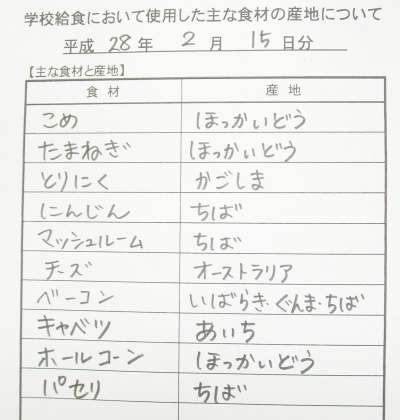 学校給食において使用した主な食材の産地について
平成 28 年 2 月 15 日分
【主な食材と産地】
食材 産地
こめ ほっかいどう
たまねぎ ほっかいどう
とりにく かごしま
にんじん ちば
マッシュルーム ちば
チーズ オーストラリア
ベーコン いばらき・ぐんま・ちば
キャベツ あいち
ホールコーン ほっかいどう
パセリ ちば